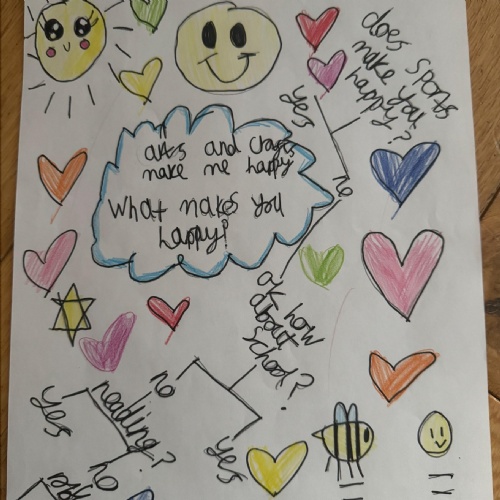 arts and crafts
make me happy
what makes you
happy?
does sports
make you
happy?
yes
no
ok how
about
school?
no
yes
reading?
yes
no